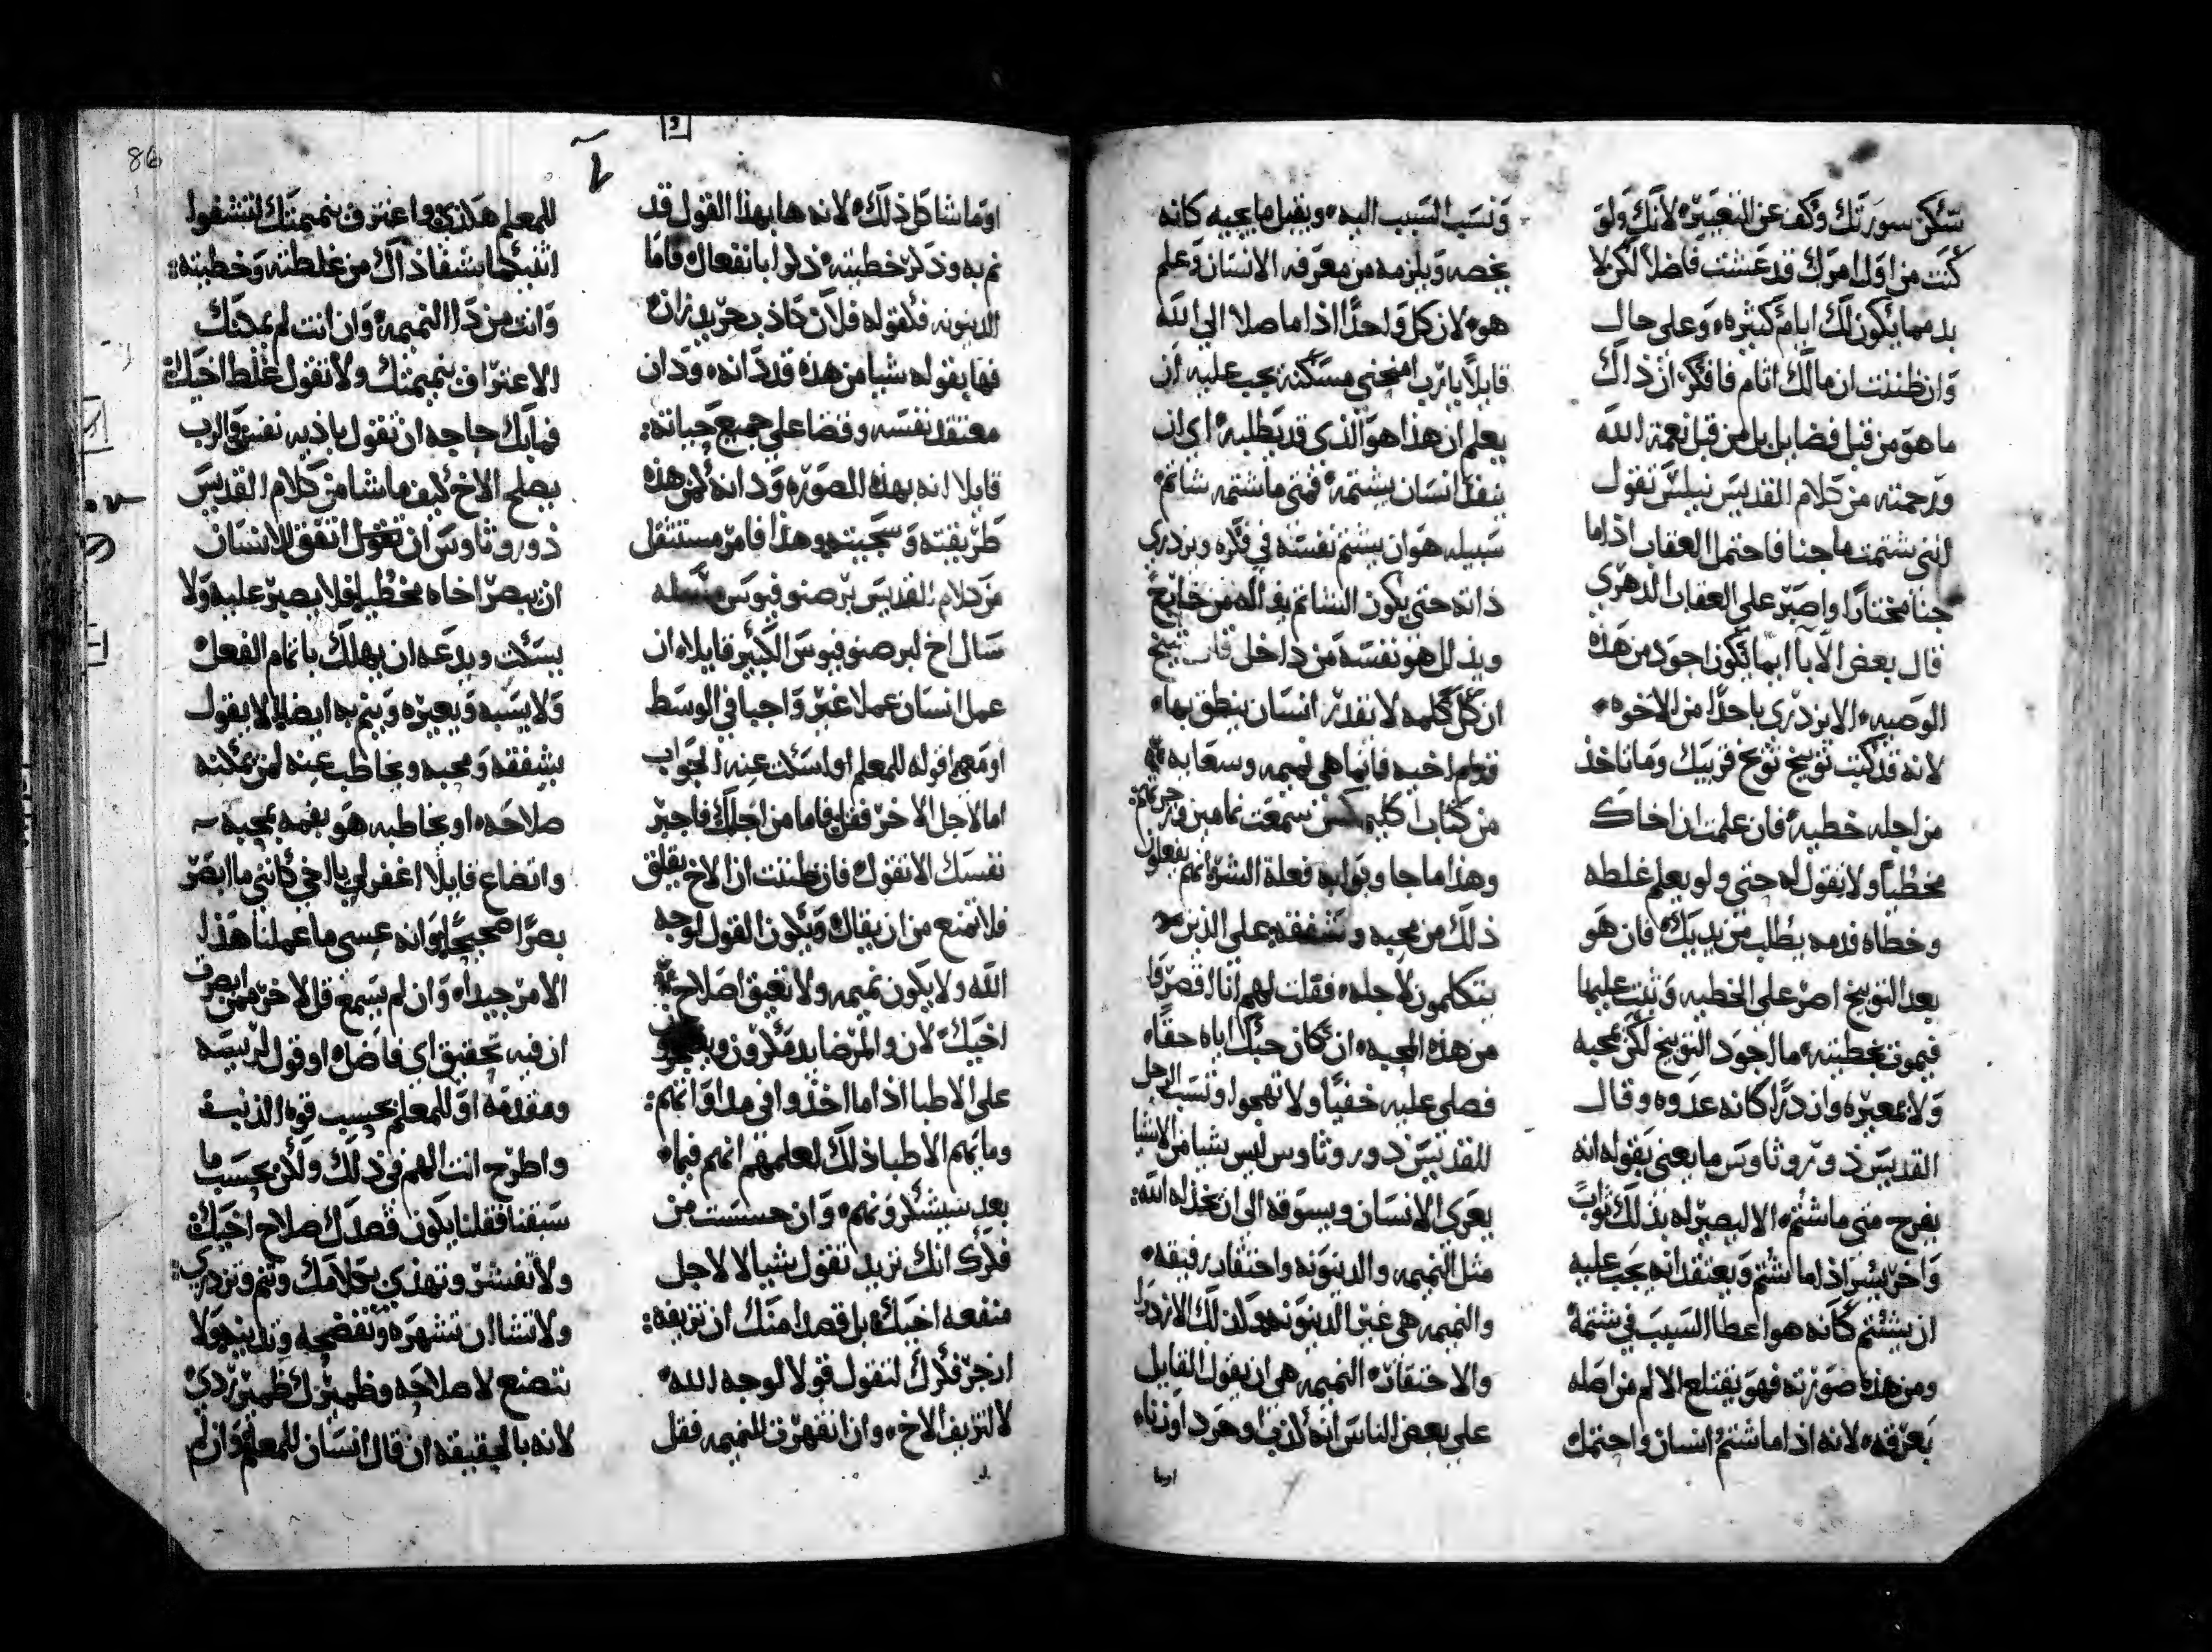 سكن سورتك وكف عن التعيير لانك ولو
كنت من اول امرك قد عشت فاضلا لكن لا
بد مما يكون لك ايام كثيره وعلى حال
وان ظننت ان مالك اثام فافكر ان ذاك
ما هو من قبل فضايل بل من قبل نعمة الله
ورحمته من كلام القديس نيلس تقول
انني شتمت ما جنا فاحتمل العقاب اذا ما
جنا مختارا واصبر على العقاب الدهري
قال بعض الابا ايما يكون اجود من هذه
الوصيه الا يزدري باحدا من الاخوه
لانه قد كتب توبيخ توبخ قريبك وما تاخذ
من اجله خطيه فان علمت ان اخاك
مخطيا ولا تقول له حتى ولو يعلم غلطه
وخطاه فدمه يطلب من يديك فان هو
بعد التوبيخ اصر على الخطيه وثبت عليها
فيموت بخطيته ما اجود التوبيخ لكن بمحبه
ولا بمعيره وازدرا كانه عدوه وقال
القديس دوروثاوس ما يعني بقوله انه
يفرح متى ما شتم الا ليصير له بذلك ثواب
واخر يسر اذا ما شتم ويعتقد انه يجب عليه
ان يشتم كانه هو اعطا السبب في شتمه
ومن هذه صورته فهو يقتلع الالم من اصله
بمعرفه لانه اذا ما شتم انسان واحتمل
ونسب السبب اليه ويقبل ما يجيه كانه
يخصه ويلزمه من معرفه الانسان وعلم
هو لان كل واحدا اذا ما صلا الى الله
قايلا يا رب امنحني مسكنه يجب عليه ان
يعلم ان هذا هو الذي قد يطلبه اي ان
ينفذ انسان يشتمه فمتى ما شتمه شاتم
سبيله هو ان يشتم نفسه في فكره ويزدري
ذاته حتى يكون الشاتم يذلله من خارج
ويذلل هو نفسه من داخل قال شيخ
ان كل كلمه لا تقدر انسان ينطق بها
قدام اخيه فانما هي نميمه وسعايه
من كتاب اكليمكس سمعت نمامين
وهذا ما جا وبوا به فعلة الشر انهم يفعلون
ذلك من محبه وشفقه على الذين
يتكلمون لاجله فقلت لهم انا اقصروا
من هذه المحبه ان كان حبك اياه حقا
فصلي عليه خفيا ولا تهجوا وتسب الرجل
للقديس دوروثاوس ليس شيا من الاشيا
يعري الانسان ويسوقه الى ان يخذله الله
مثل النميمه والدينونه واحتقار رفيقه
والنميمه هي غير الدينونه وكذلك الازدرا
والاحتقار النميمه هي ان يقول القايل
على بعض الناس انه كذب او حرد او زناء
اوما
اوما شاكل ذلك لانه ها بهذا القول قد
نم به وذكر خطيته ذكرا بانفعال فاما
الدينونه فكقوله فلان كاذب حريد زان
فها بقوله شيا من هذه قد دانه ودان
معتقد نفسه وقضا على جميع حياته
قايلا انه بهذه الصوره ودانه لمن هذه
طريقته وسجيته وهذا فامر مستثقل
من كلام القديس برصنوفيوس مسله
سال اخ لبرصنوفيوس الكبير قايلا ان
عمل انسان عملا غير واجبا في الوسط
اومعي اقوله للمعلم او اسكت عنه الجواب
اما لاجل الاخر فقل فاما من اجلك فاجبر
نفسك الا تقول فان ظننت ان الاخ يقلق
فلا تمنع من ان يقال ويكون القول لوجه
الله ولا يكون نميمه ولا تعيق اصلاح
اخيك لان والمرضا يدمدمون
على الاطبا اذا ما اخذوا في مداواتهم
وما يهم الاطبا ذلك لعلمهم انهم فيما
بعد سيشكرونهم وان حسست من
فكرك انك تريد تقول شيا لا لاجل
منفعه اخيك بل قصدا منك ان تزيفه
ازجر فكرك لتقول قولا لوجه الله
لا لتزيف الاخ وان انقهرت للنميمه فقل
للمعلم هكذا واعترف بنميمتك لتشفوا
اثنيكما بشفا ذاك من غلطته وخطيته
وانت من دا النميمه وان انت لم يمكنك
الاعتراف بنميمتك ولا تقول غلط اخيك
فما بك حاجه ان تقول باذيه نفس والرب
يصلح الاخ كيف ما شا من كلام القديس
دوروثاوس ان اتفق للانسان
ان يبصر اخاه مخطيا فلا يصبر عليه ولا
يسكت ويدعه ان يهلك باتمام الفعل
ولا يسبه ويعيره وينم به ايضا بل يقول
بشفقه ومحبه ويخاطب عنه لمن يمكنه
صلاحه او يخاطبه هو بفمه بمحبه
واتضاع قايلا اغفر لي يا اخي كانني ما ابصر
بصرا صحيحا وانه عسى ما عملنا هذا
الامر جيدا وان لم يسمع قل لاخر ممن
ان فيه تحقيق اي فاضل او قول لريسه
ومقدمه او للمعلم بحسب قوه الذنب
واطرح انت الهم في ذلك ولكن بحسب ما
سبقنا فقلنا يكون قصدك صلاح اخيك
ولا تفشر وتهذي بكلامك وتنم وتزدري
ولا تشا ان تشهره وتفضحه وتدينه ولا
تتصنع لاصلاحه وضميرك ضمير ردي
لانه بالحقيقه ان قال انسان للمعلم وان لم